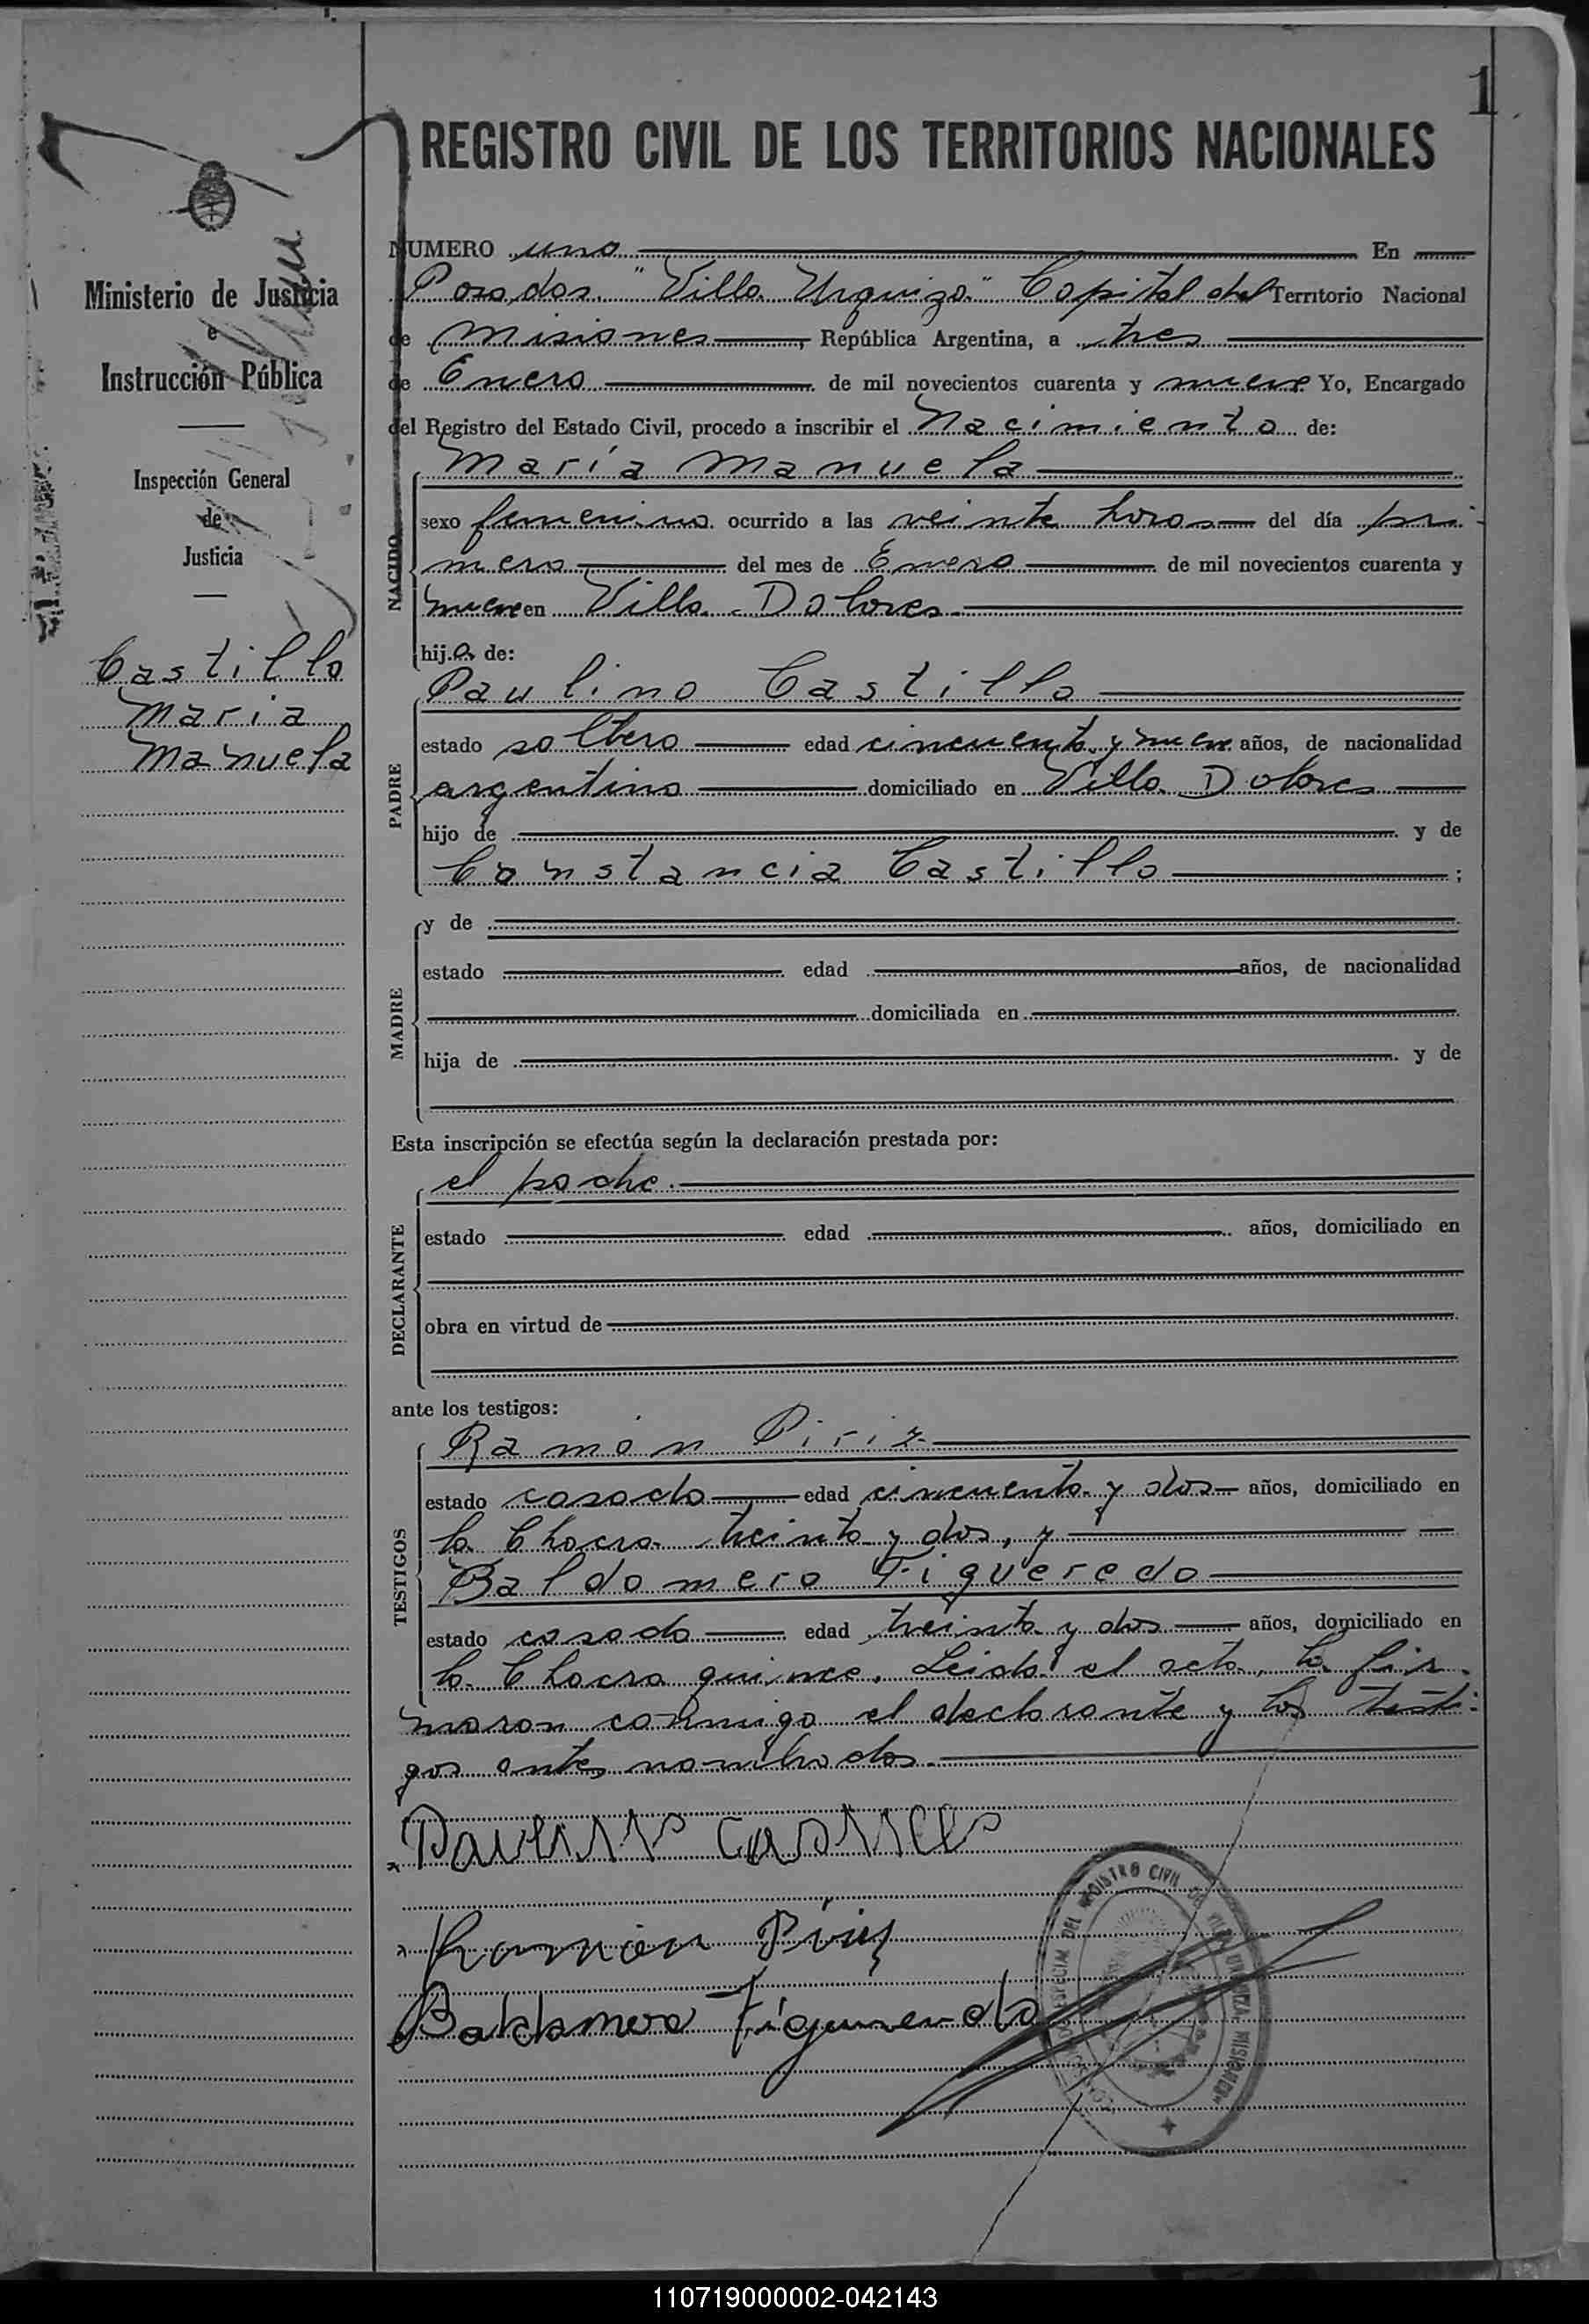 1
REGISTRO CIVIL DE LOS TERRITORIOS NACIONALES
Ministerio de Justicia
e
Instrucción Pública
Inspección General
de
Justicia
Castillo
María
Manuela
NUMERO uno En
Posadas "Villa Urquiza" Capital del Territorio Nacional
de Misiones, República Argentina, a tres
de Enero de mil novecientos cuarenta y nueve Yo, Encargado
del Registro del Estado Civil, procedo a inscribir el Nacimiento de:
NACIDO
María Manuela
sexo femenino ocurrido a las veinte horas del día pri-
mero del mes de Enero de mil novecientos cuarenta y
nueve en Villa Dolores
hija de:
PADRE
Paulino Castillo
estado soltero edad cincuenta y nueve años, de nacionalidad
argentino domiciliado en Villa Dolores
hijo de y de
Constancia Castillo ;
MADRE
y de
estado edad años, de nacionalidad
domiciliada en
hija de y de
Esta inscripción se efectúa según la declaración prestada por:
DECLARANTE
el padre.
estado edad años, domiciliado en
obra en virtud de
ante los testigos:
TESTIGOS
Ramón Piriz
estado casado edad cincuenta y dos años, domiciliado en
la Chacra treinta y dos, y
Baldomero Figueredo
estado casado edad treinta y dos años, domiciliado en
la Chacra quince. Leida el acta, la fir-
maron conmigo el declarante y los testi-
gos antes nombrados.
Paulino Castillo
Ramón Piriz
Baldomero Figueredo
ESPECIAL DEL REGISTRO CIVIL DE VILLA URQUIZA MISIONES
110719000002-042143